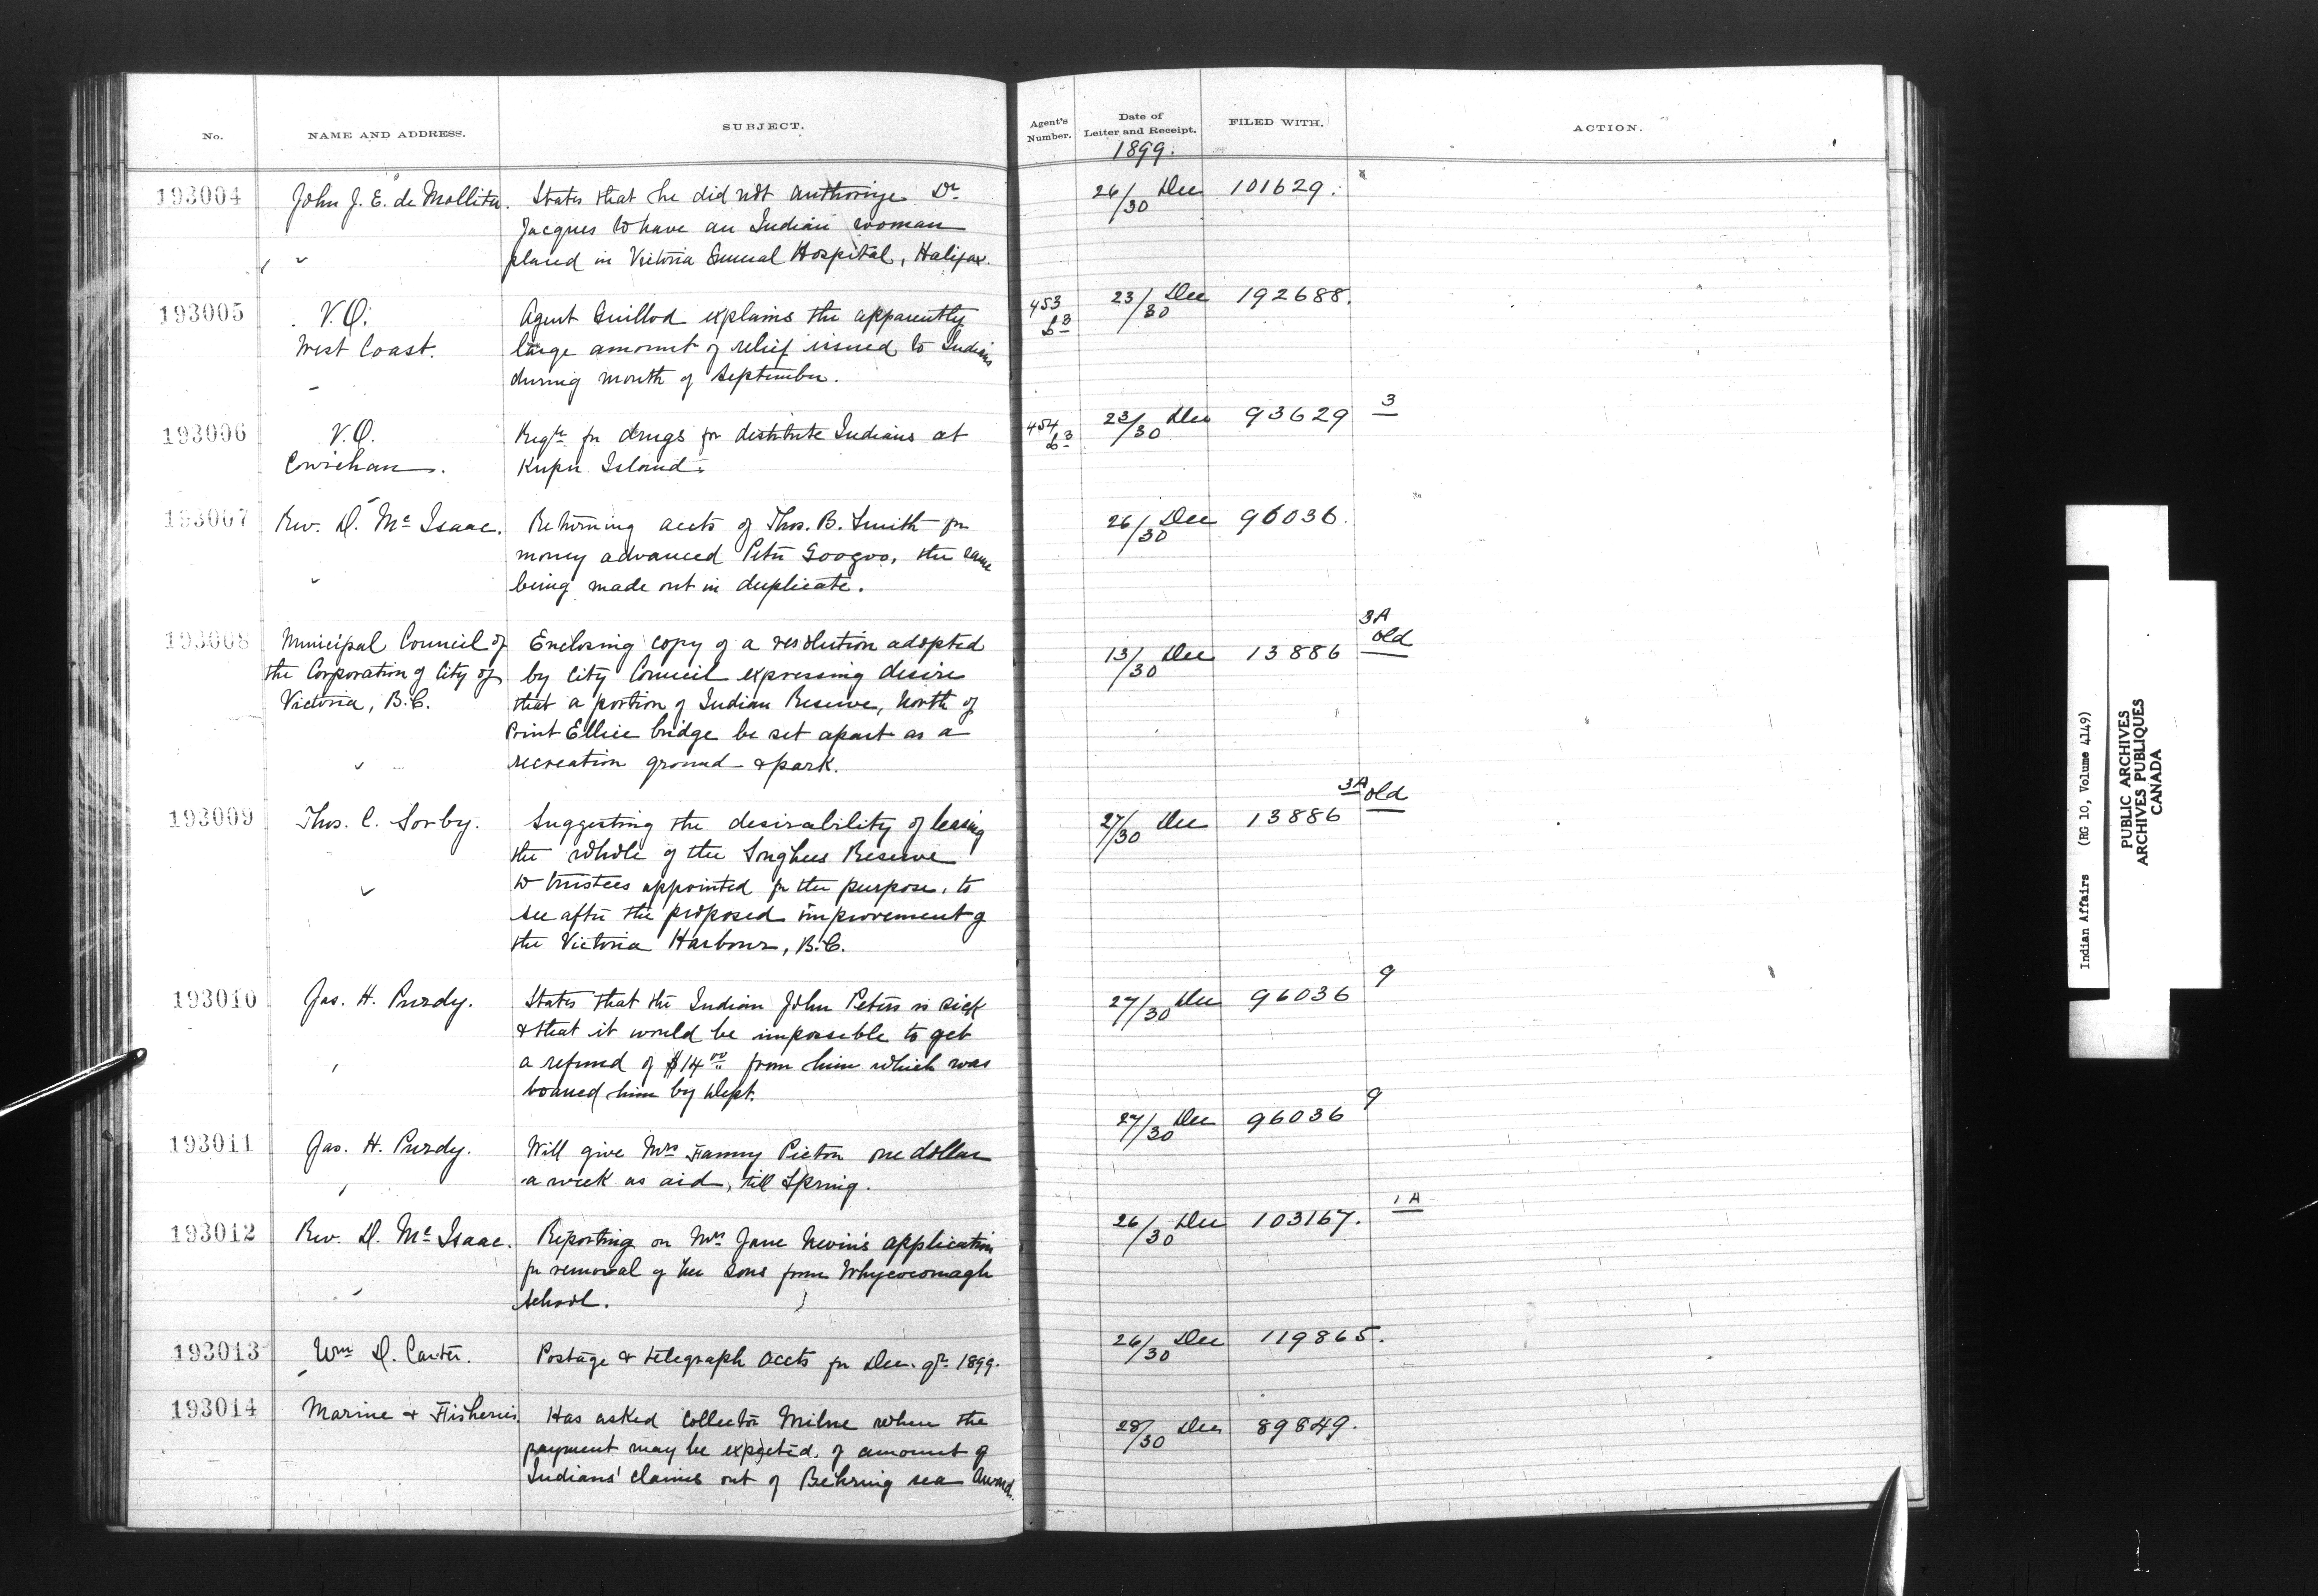 No. NAME AND ADDRESS. SUBJECT. Agent's Number. Date of Letter and Receipt. FILED WITH. ACTION.
1899.
193004 John J. E. de Mollitor. States that he did not authorize Dr. 26/30 Dec 101629.
Jacques to have an Indian woman
placed in Victoria General Hospital, Halifax.
193005 V.O. Agent Guillod explains the apparently 453 23/30 Dec 192688.
West Coast. large amount of relief issued to Indians
during month of September.
193006 V.O. Reqn for drugs for distitute Indians at 454 23/30 Dec 93629 3
Cowichan. Kuper Island.
193007 Rev. D. McIsaac. Returning accts of Thos. B. Smith for 26/30 Dec 96036.
money advanced Peter Googoo, the same
being made out in duplicate.
193008 Municipal Council of Enclosing copy of a resolution adopted 13/30 Dec 13886 3A old
the Corporation of City of by City Council expressing desire
Victoria, B.C. that a portion of Indian Reserve, North of
Point Ellice bridge be set apart as a
recreation ground & park.
193009 Thos. C. Sorby. Suggesting the desirability of leasing 27/30 Dec 13886 3A old
the whole of the Songhees Reserve
to trustees appointed for the purpose, to
see after the proposed improvement of
the Victoria Harbour, B.C.
193010 Jas. H. Purdy. States that the Indian John Peters is sick 27/30 Dec 96036 9
& that it would be impossible to get
a refund of $14.00 from him which was
loaned him by Dept.
193011 Jas. H. Purdy. Will give Mrs Fanny Picton one dollar 27/30 Dec 96036 9
a week as aid, till Spring.
193012 Rev. D. McIsaac. Reporting on Mrs Jane Nevin's application 26/30 Dec 103167. 1A
for removal of her sons from Whycocomagh
School.
193013 Wm D. Carter. Postage & telegraph accts for Dec. qr. 1899. 26/30 Dec 119865.
193014 Marine & Fisheries Has asked Collector Milne when the 28/30 Dec 89849.
payment may be expected, of amount of
Indians' claims out of Behring sea Award.
Indian Affairs (RG 10, Volume 4149)
PUBLIC ARCHIVES
ARCHIVES PUBLIQUES
CANADA